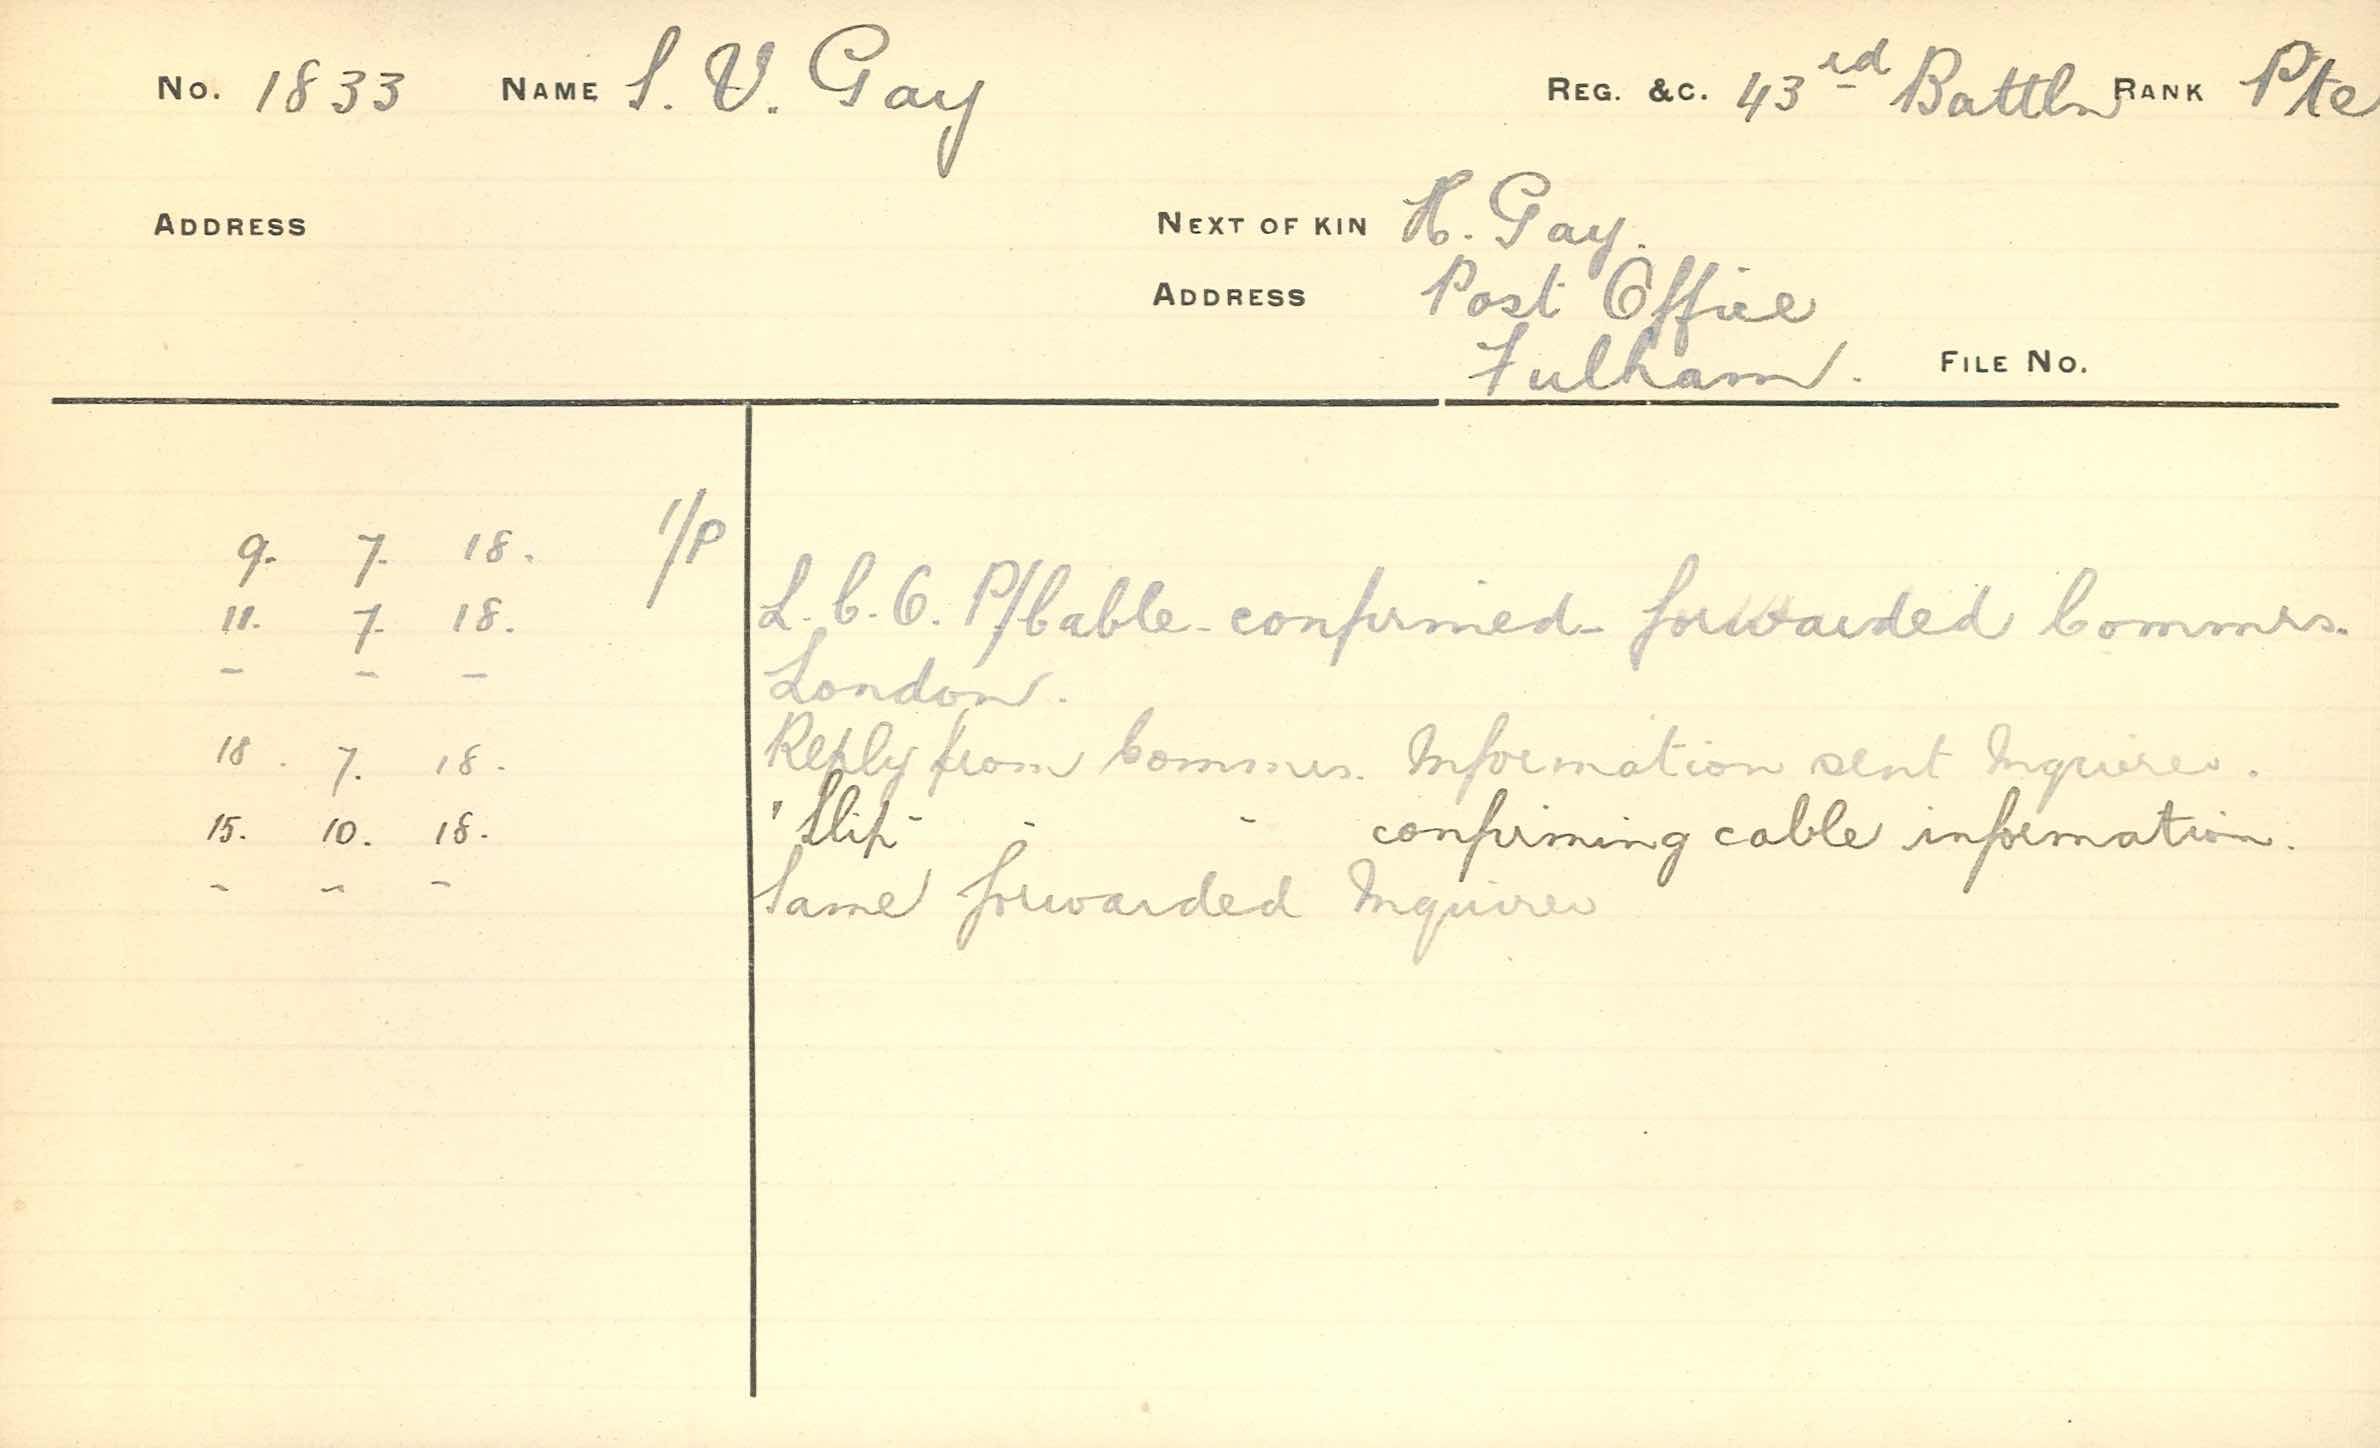 No. 1833 NAME S. V. Gay REG. &C. 43rd Battln RANK Pte
ADDRESS NEXT OF KIN H. Gay.
ADDRESS Post Office
Fulham. FILE No.
9. 7. 18. 1/P
11. 7. 18. L.C.O. P/Cable - confirmed - forwarded Commrs.
- - - London.
18. 7. 18. Reply from Commrs. Information sent Inquirer.
15. 10. 18. "Slip" - - confirming cable information.
- - - Same forwarded Inquirer